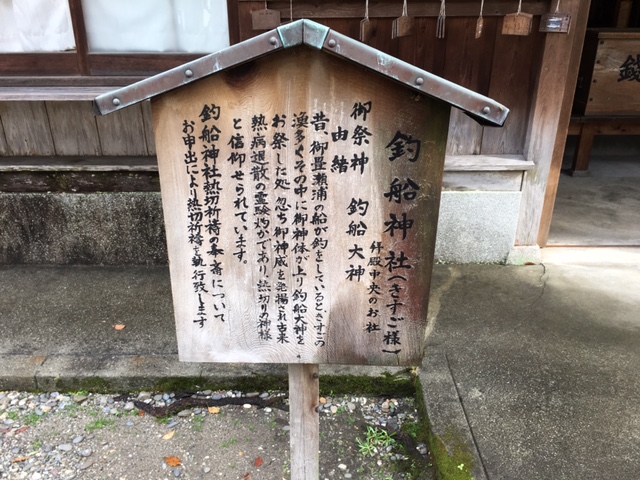 釣船神社(きすご様)
拝殿中央のお社
御祭神 釣船大神
由緒
昔、御畳瀬浦の船が釣をしているときすごの
漁多くその中に御神体が上り釣船大神を
お祭した処忽ち御神威を発揚され古来
熱病退散の霊験灼かであり、熱切りの神様
と信仰せられています。
釣船神社熱切祈祷の奉斎について
お申出により熱切祈祷を執行致します